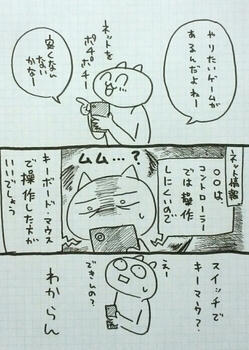 やりたいゲームが
あるんだよねー
ネットを
ポチポチー
安くなん
ない
かなー
ネット情報
○○は、
コントローラー
では操作
しにくいので
ムム…？
キーボード・マウス
で操作した方が
いいでしょう
スイッチで
キーマウ？
えー
できんの？
わからん